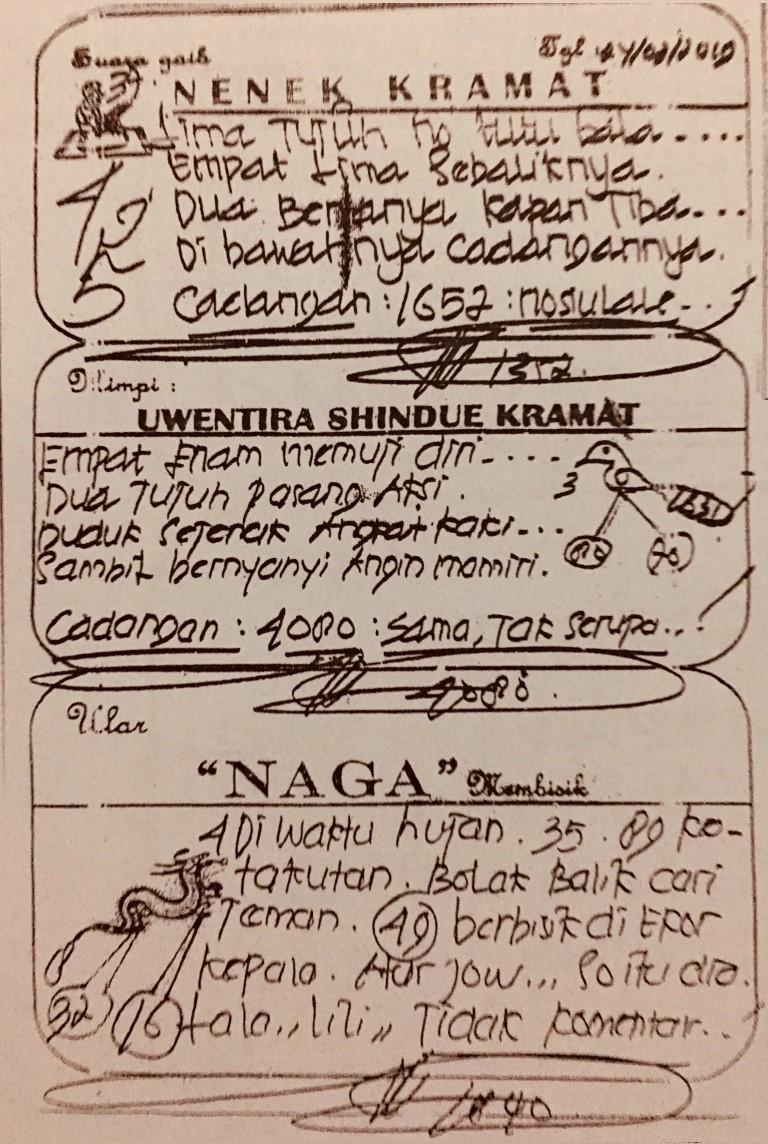 Suara gaib Tgl 24/02/2019
NENEK KRAMAT
Lima Tujuh no bala....
Empat Lima Sebaliknya.
Dua Bertanya kapan Tiba...
Di bawahnya Cadangannya.
5 Cadangan : 1652 : nosulale..
1352.
Dilimpi :
UWENTIRA SHINDUE KRAMAT
Empat Enam memuji diri....
Dua Tujuh pasang Aksi.
3
Duduk Sejenak Angkat kaki...
Sambil bernyanyi Angin mamiri.
Cadangan : 4080 : Sama, Tak Serupa...
4080.
Ular
"NAGA" Membisik
4 Di waktu hujan. 35. 89 ke-
takutan. Bolak Balik cari
Teman. 49 berbisik di Ekor
8 kepala. Atur jow... So itu dia.
32 76 Lala,, lili,, Tidak komentar..